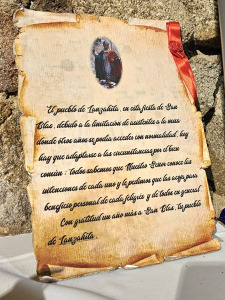 El pueblo de Lanzahita, en esta fiesta de San
Blas, debido a la limitación de asistencia a la misa
donde otros años se podía acceder con normalidad, hoy
hay que adaptarse a las circunstancias por el bien
común; todos sabemos que Nuestro conoce las
intenciones de cada uno y le pedimos que las acoja para
beneficio personal de cada feligrés y de todos en general.
Con gratitud un año más a San Blas, tu pueblo
de Lanzahita.